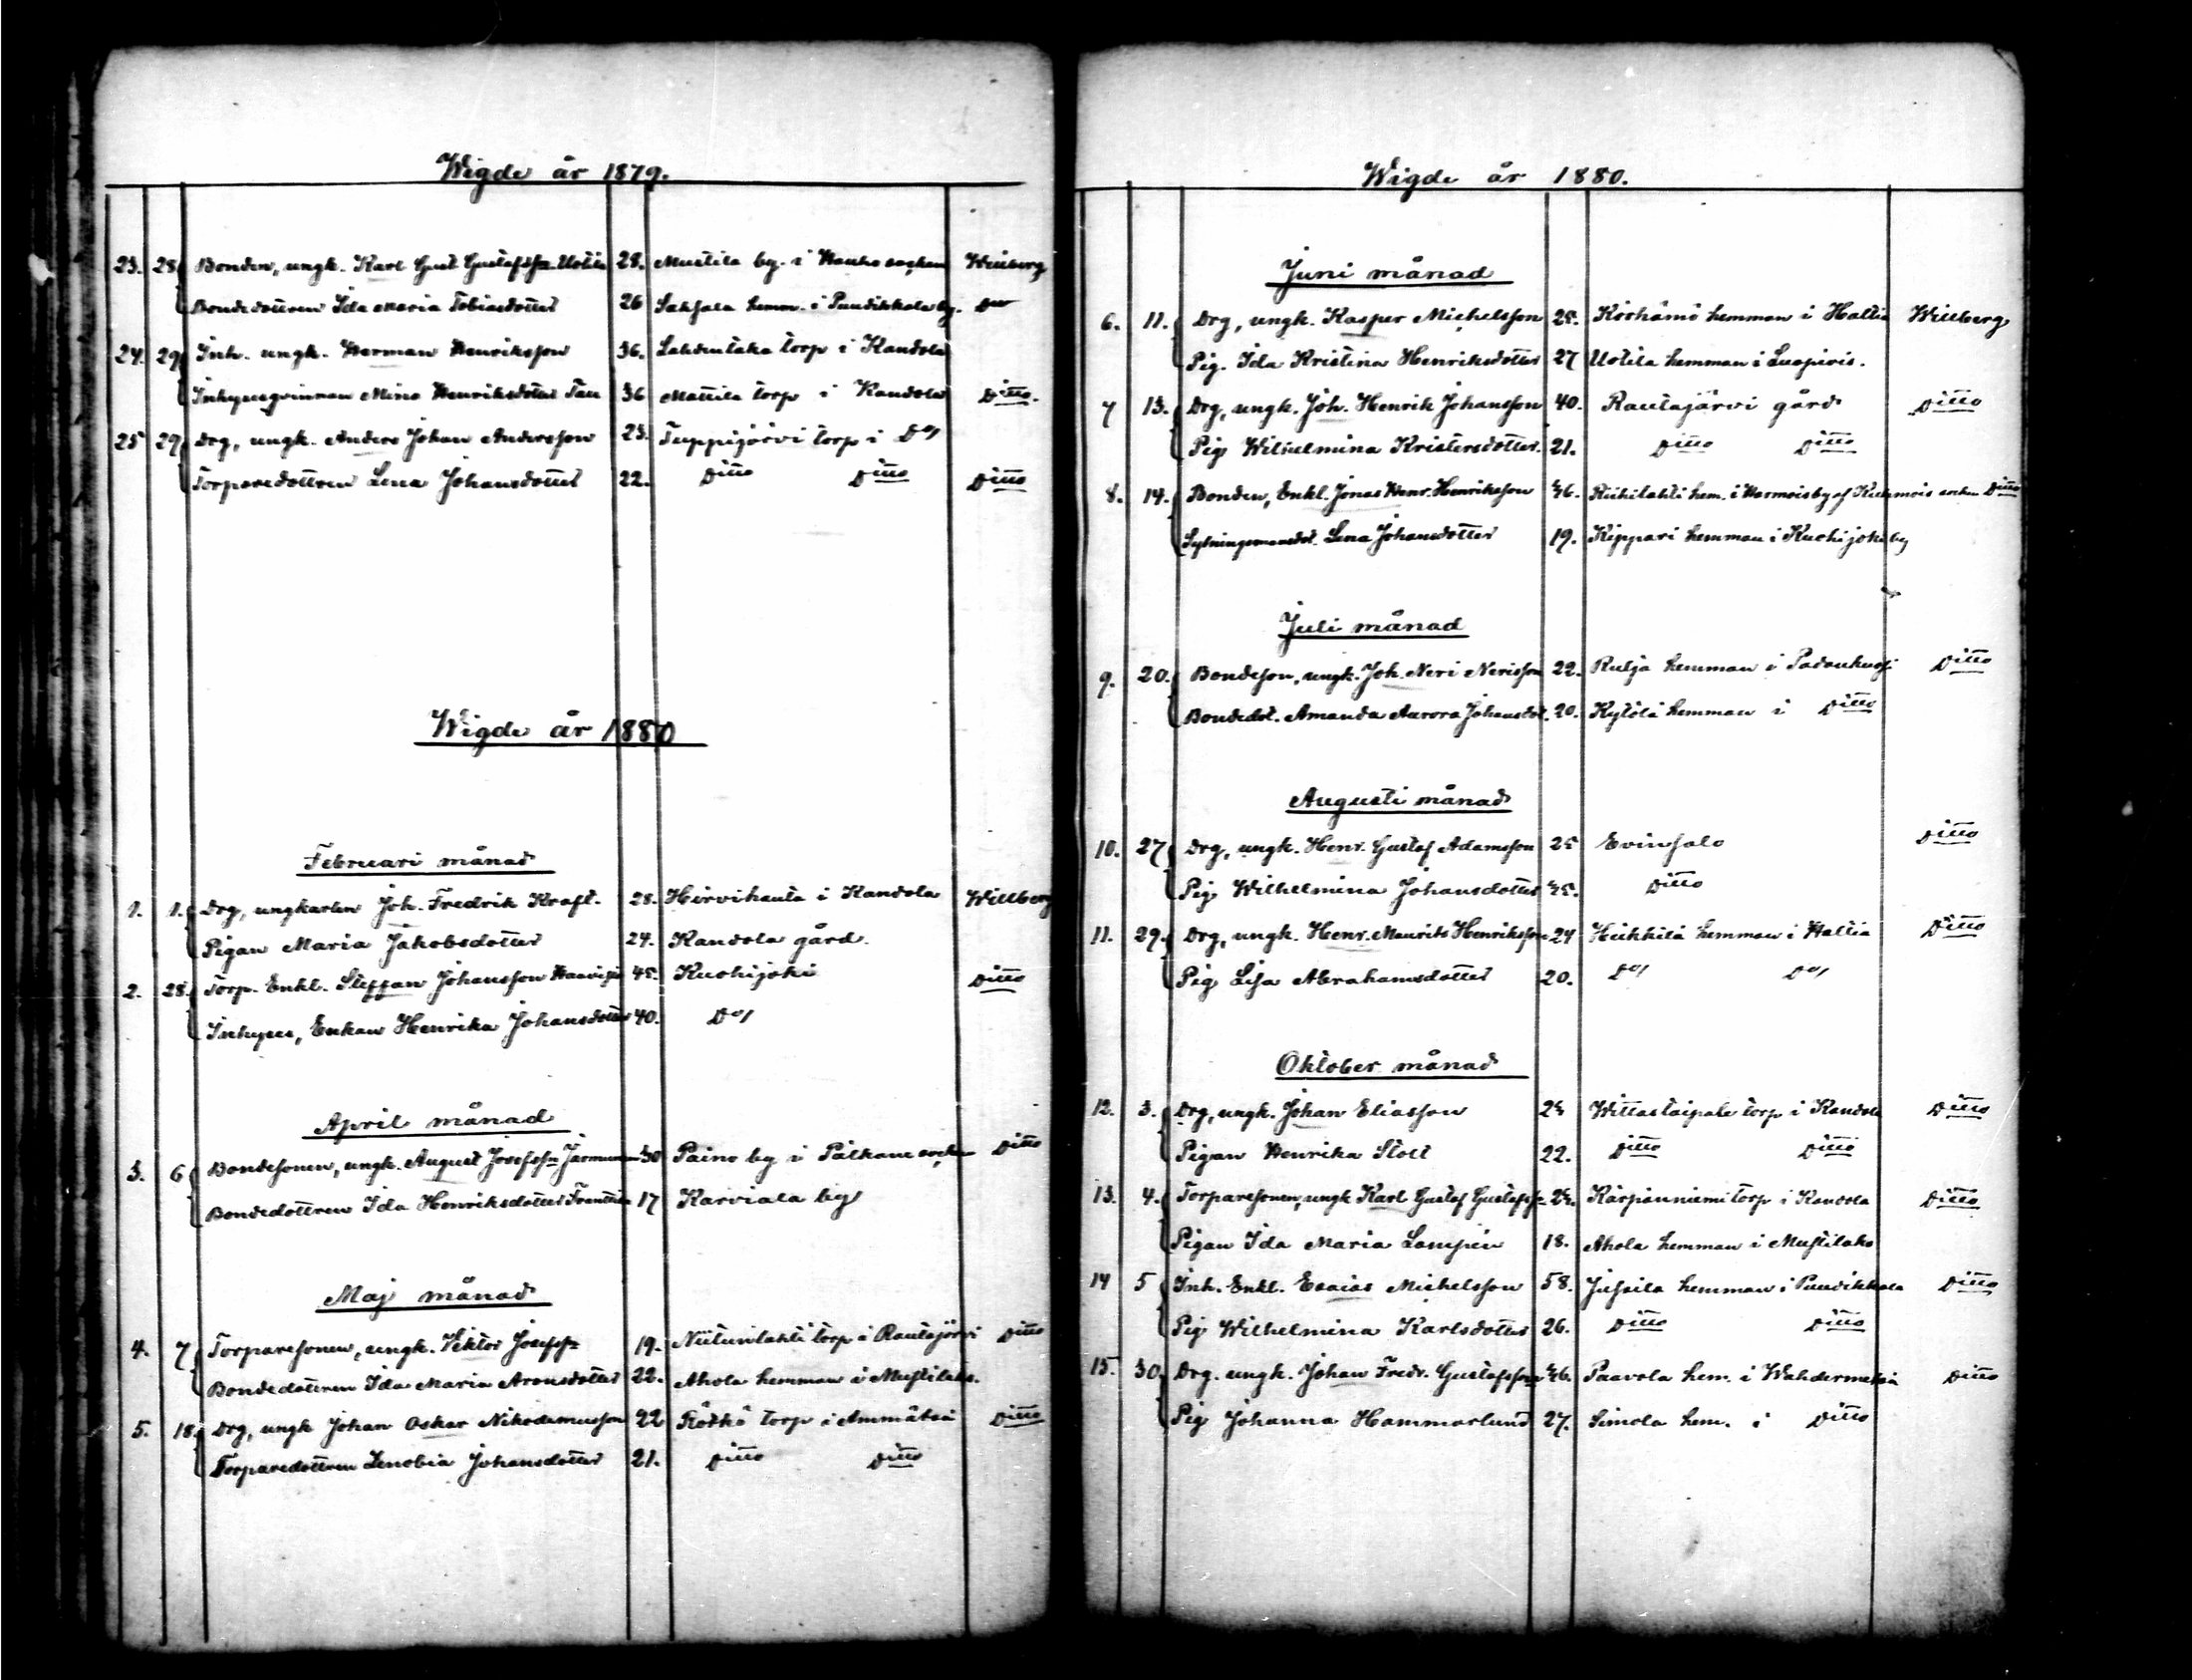 Wigde år 1879.
23. 28. Bonden, ungk. Karl Gust. Gustafss:n Uotila 28. Mustila by i Hauho socken Willberg
Bondedottren Ida Maria Tobiasdotter 26 Sahjala hemm. i Puudikkala by. Do
24. 29 Inh. ungk. Herman Henriksson 36. Lahdentaka torp i Kandola
Inhysesqvinnan Mina Henriksdotter 36 Mattila torp i Kandola Ditto.
25 29 Drg, ungk. Anders Johan Andersson 23. Tuppijärvi torp i Do/
Torparedottren Lena Johansdotter 22. Ditto Ditto Ditto
Wigde år 1880
Februari månad
1. 1. Drg, ungkarlen Joh. Fredrik Kraft. 28. Hirvihauta i Kandola Willberg
Pigan Maria Jakobsdotter 24. Kandola gård.
2. 28. Torp. Enkl. Steffan Johansson 45. Kuohijoki Ditto
Inhyses, Enkan Henrika Johansdotter 40. Do/
April månad
3. 6 Bondesonen, ungk. August Josefss:n 30 Paino by i Pälkäne socken Ditto
Bondedottren Ida Henriksdotter Franttila 17 Karviala by
Maj månad
4. 7 Torparesonen, ungk. Viktor Josefss:n 19. Niitunlahti torp i Rautajärvi Ditto
Bondedottren Ida Maria Aronsdotter 22. Ahola hemman i Mustilaks.
5. 18. Drg, ungk Johan Oskar Nikodemusson 22 torp i Ämmätsä Ditto
Torparedottren Zenobia Johansdotter 21. Ditto Ditto
Wigde år 1880.
Juni månad
6. 11. Drg, ungk. Kasper Michelsson 25. hemman i Hattia Willberg
Pig. Ida Kristina Henriksdotter 27 Uotila hemman i Luopiois.
7 13. Drg, ungk. Joh. Henrik Johansson 40. Rautajärvi gård Ditto
Pig Wilhelmina Kristersdotter. 21. Ditto Ditto
8. 14. Bonden, Enkl. Jonas Henr. Henriksson 46. Riihilahti hem. i Harmois by af Kuhmois socken Ditto
Sytningsmansdot. Lena Johansdotter 19. Kippari hemman i Kuohijoki by
Juli månad
9. 20. Bondeson, ungk. Joh. Neri Nerisson 22. Rulja hemman i Padankoski Ditto
Bondedot. Amanda Aurora Johansdot. 20. Kytölä hemman i Ditto
Augusti månad
10. 27 Drg, ungk. Henr. Gustaf Adamsson 25 Evinsalo Ditto
Pig Wilhelmina Johansdotter 45. Ditto
11. 29. Drg, ungk. Henr. Maurits Henriksson 24 Heikkilä hemman i Hattia Ditto
Pig Lisa Abrahamsdotter 20. Do/ Do/
Oktober månad
12. 3. Drg, ungk. Johan Eliasson 24 Wittastaipale torp i Kandola Ditto
Pigan Henrika Stolt 22. Ditto Ditto
13. 4. Torparesonen, ungk Karl Gustaf Gustafss:n 24. Kärpänniemi torp i Kandola Ditto
Pigan Ida Maria Lampén 18. Ahola hemman i Mustilaks
14 5 Inh. Enkl. Esaias Michelsson 58. Jussila hemman i Puudikkala Ditto
Pig Wilhelmina Karlsdotter 26. Ditto Ditto
15. 30. Drg. ungk. Johan Fredr. Gustafsson 46. Paavola hem. i Wahdermetsä Ditto
Pig Johanna Hammarlund 27. Simola hem. i Ditto